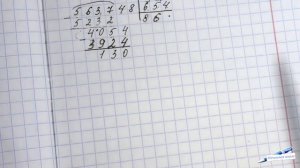 563748 654
5232 86
4054
3924
130